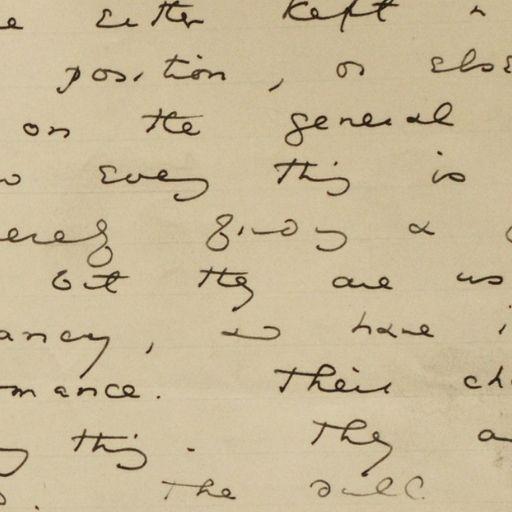 either kept a
position, or else
on the general
every thing is
but they are us
ancy, & have i
mance. Their ch
thing. They a
The dull